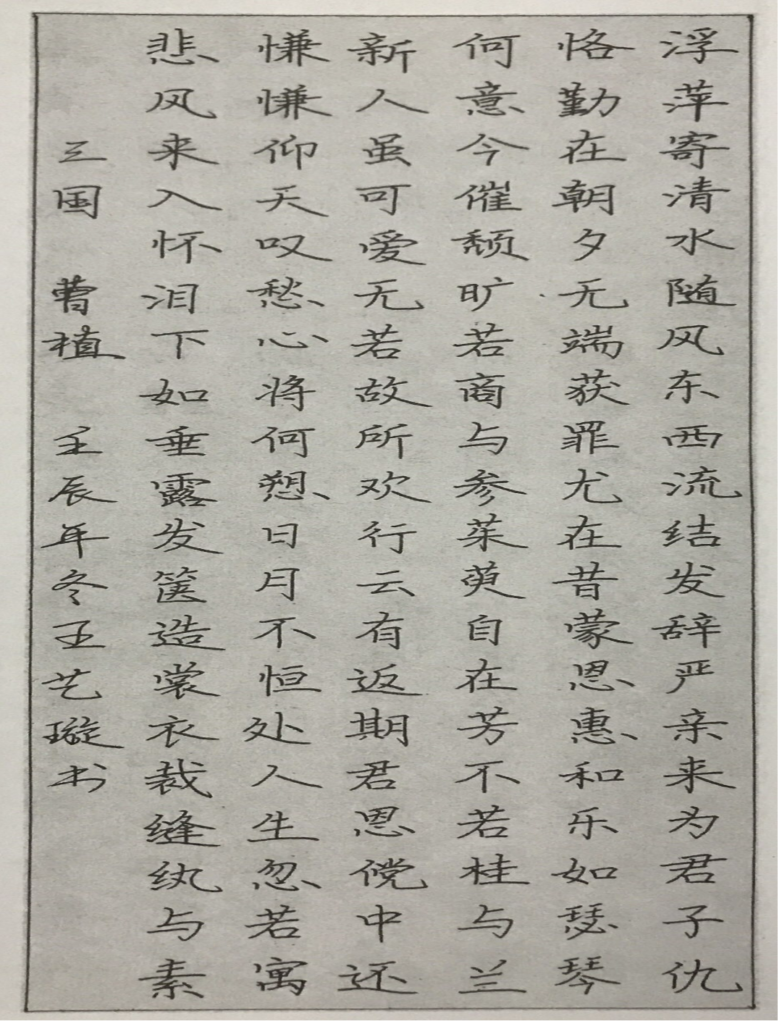 浮萍寄清水随风东西流结发辞严亲来为君子仇
恪勤在朝夕无端获罪尤在昔蒙恩惠和乐如瑟琴
何意今催颓旷若商与参茱萸自在芳不若桂与兰
新人虽可爱无若故所欢行云有返期君恩傥中还
慊慊仰天叹愁心将何愬日月不恒处人生忽若寓
悲风来入怀泪下如垂露发箧造裳衣裁缝纨与素
三国 曹植 壬辰年冬王艺璇书